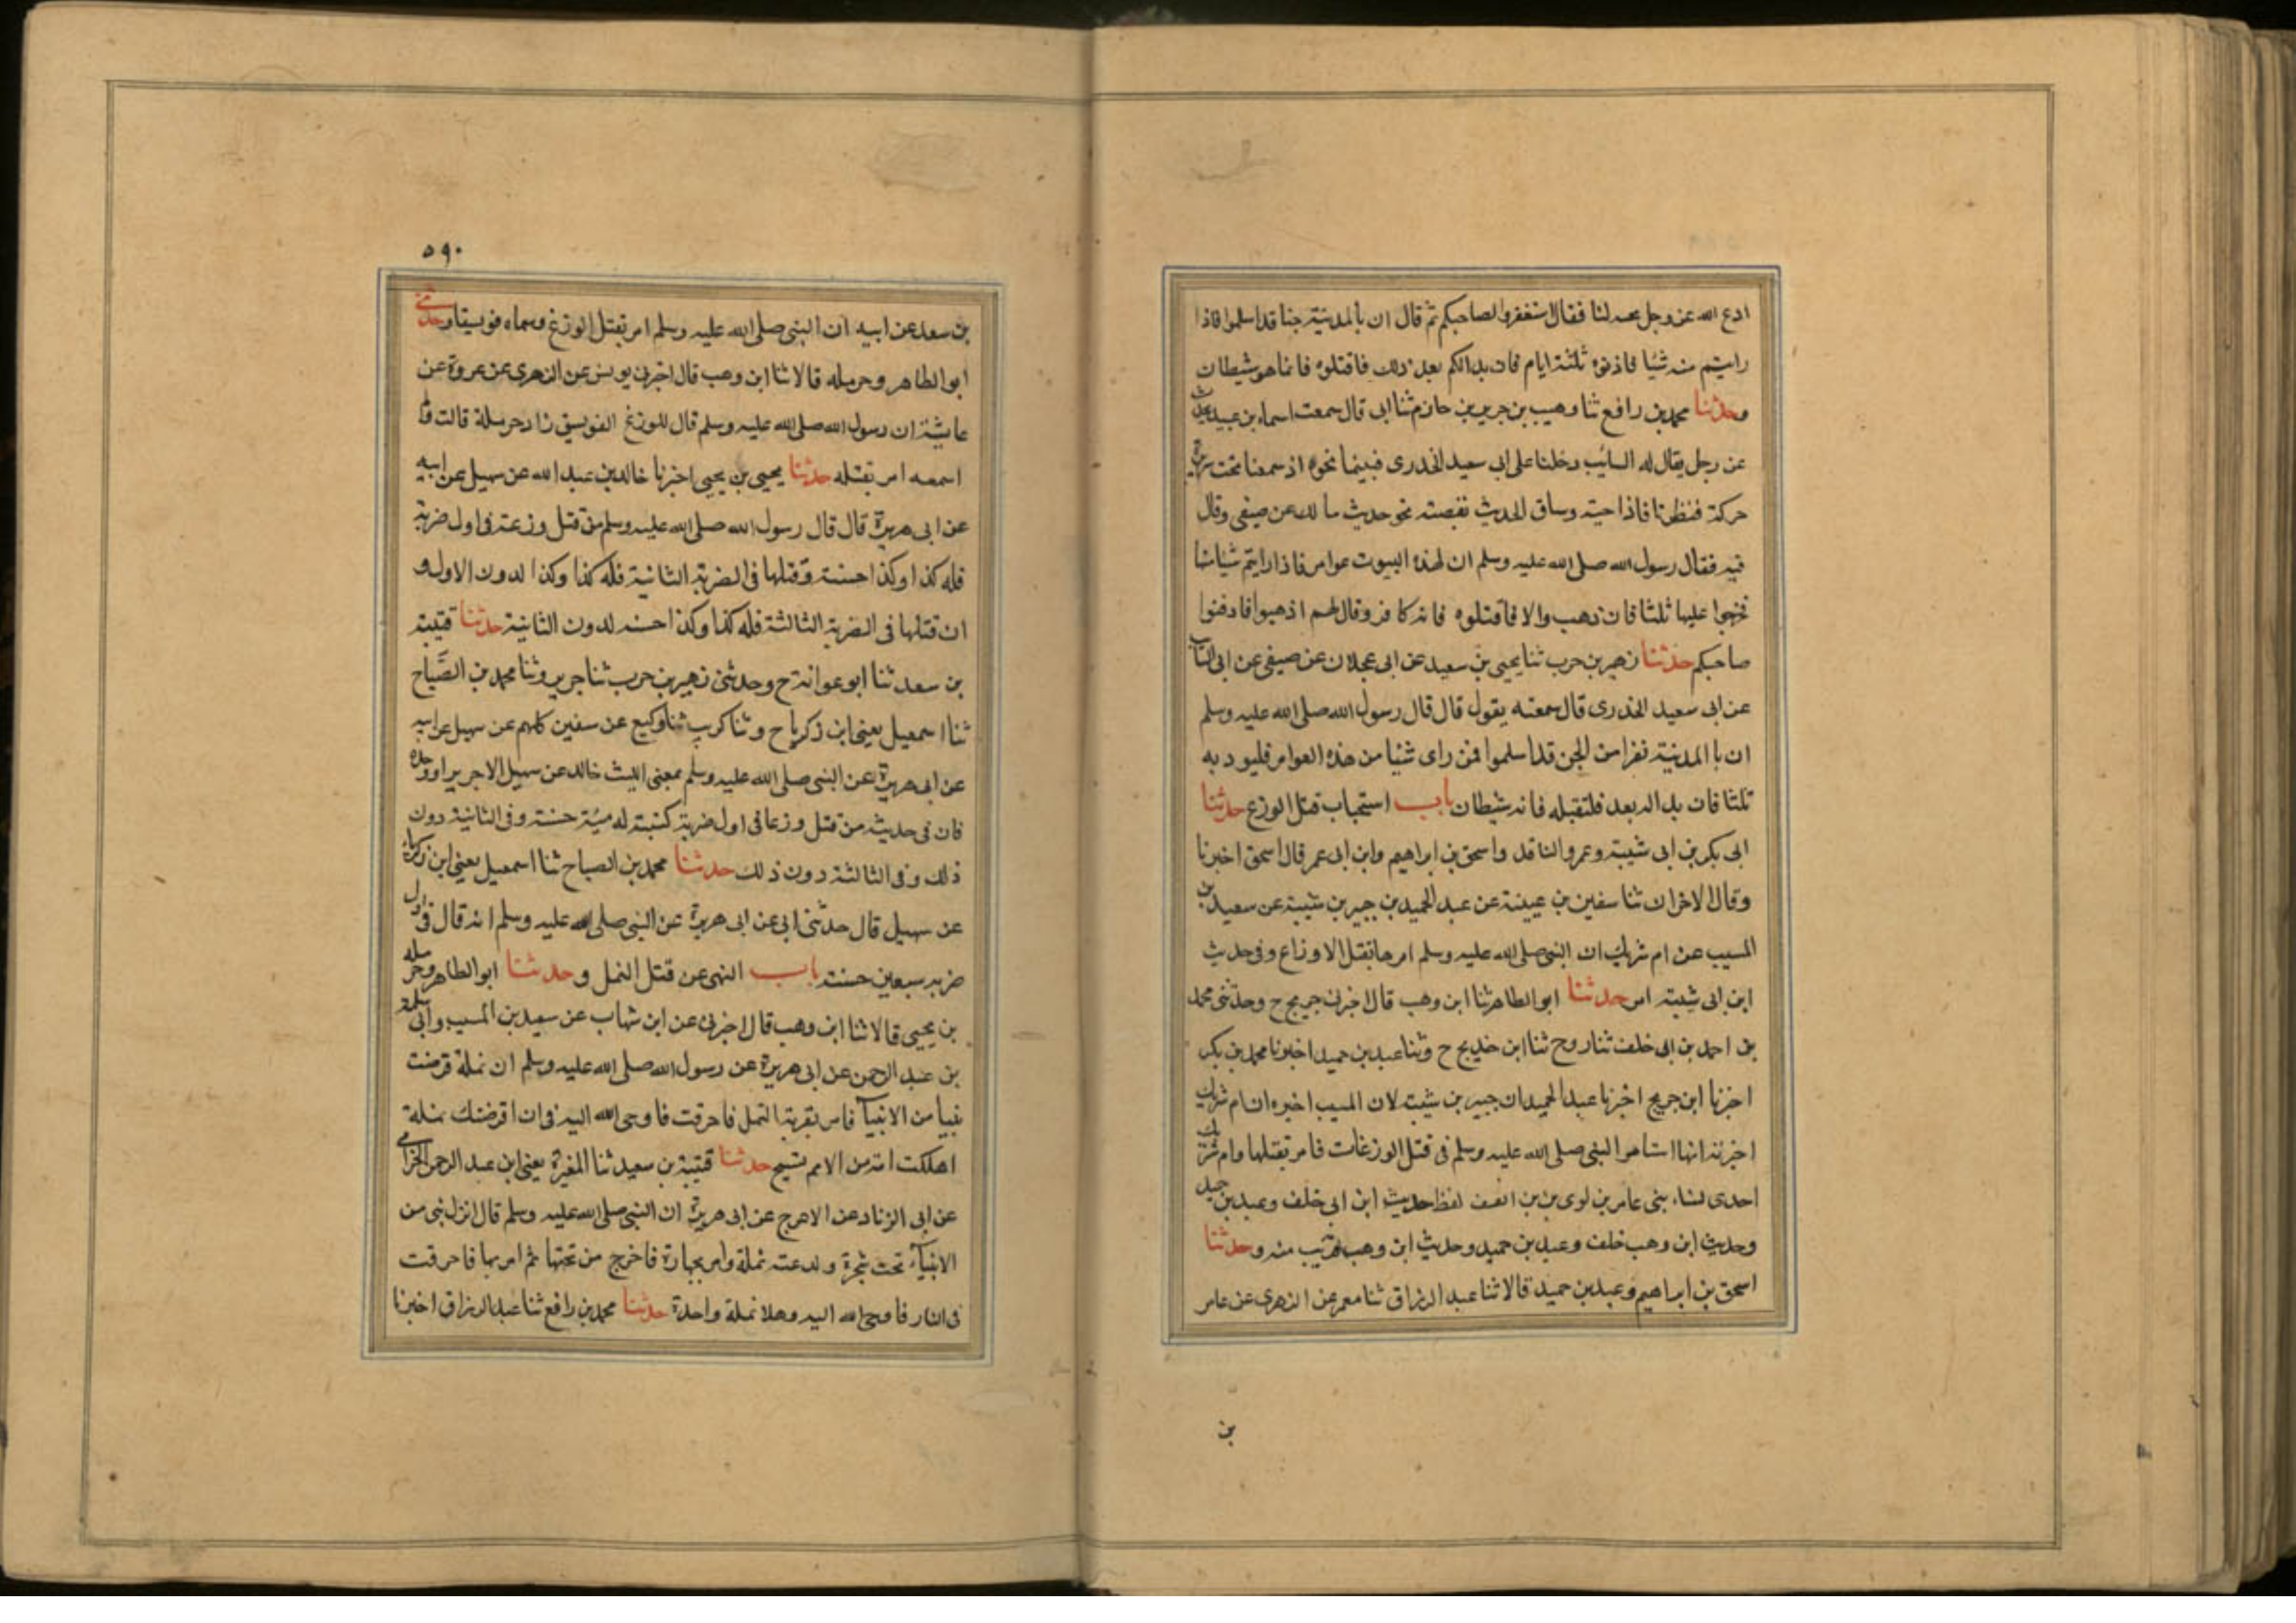 ادع الله عز وجل يحييه لنا فقال استغفروا لصاحبكم ثم قال ان بالمدينة جنا قد اسلموا فاذا
رايتم منه شيئا فاذنوه ثلثة ايام فان بدا لكم بعد ذلك فاقتلوه فانما هو شيطان
وحدثنا محمد بن رافع ثنا وهيب بن جرير بن حازم ثنا ابى قال سمعت اسماء بن عبيد يحدث
عن رجل يقال له السائب دخلنا على ابى سعيد الخدرى فبينما نحوه اذ سمعنا تحت سريره
حركة فنظرنا فاذا حية وساق الحديث بقصته نحو حديث مالك عن صيفى وقال
فيه فقال رسول الله صلى الله عليه وسلم ان لهذه البيوت عوامر فاذا رايتم شيئا منها
فحرجوا عليها ثلثا فان ذهب والا فاقتلوه فانه كافر وقال لهم اذهبوا فادفنوا
صاحبكم حدثنا زهير بن حرب ثنا يحيى بن سعيد عن ابى عجلان عن صيفى عن ابى السائب
عن ابى سعيد الخدرى قال سمعته يقول قال قال رسول الله صلى الله عليه وسلم
ان با المدينة نفرا من الجن قد اسلموا فمن راى شيئا من هذه العوامر فليوذبه
ثلثا فان بدا له بعد فلتقبله فانه شيطان باب استحباب قتل الوزغ حدثنا
ابى بكر بن ابى شيبة وعمرو الناقد واسحق بن ابراهيم وابن ابى عمر قال اسحق اخبرنا
وقال الاخران ثنا سفين بن عيينة عن عبد الحميد بن جبير بن شيبة عن سعيد بن
المسيب عن ام شريك ان النبى صلى الله عليه وسلم امرها بقتل الاوزاغ وفى حديث
ابن ابى شيبة امر حدثنا ابو الطاهر ثنا ابن وهب قال اخبرنى جريج ح وحدثنى محمد
بن احمد بن ابى خلف ثنا روح ثنا ابن جريج ح وثنا عبد بن حميد اخبرنا محمد بن بكر
اخبرنا ابن جريج اخبرنا عبد الحميد ان جبير بن شيبة لان المسيب اخبره ان ام شريك
اخبرته انها استامر النبى صلى الله عليه وسلم فى قتل الوزغات فامر بقتلها وام شريك
احدى نساء بنى عامر بن لوى بن بن اتفق لفظ حديث ابن ابى خلف وعبد بن حميد
وحديث ابن وهب خلف وعبد بن حميد وحديث ابن وهب قريب منه وحدثنا
اسحق بن ابراهيم وعبد بن حميد قالا ثنا عبد الرزاق ثنا معمر عن الزهرى عن عامر
بن
٥٩٠
بن سعد عن ابيه ان النبى صلى الله عليه وسلم امر بقتل الوزغ وسماه فويسقا وحدثنى
ابو الطاهر وحرمله قالا ثنا ابن وهب قال اخبرنى يونس عن الزهرى عن عروة عن
عايشة ان رسول الله صلى الله عليه وسلم قال للوزغ الفويسق زاد حرملة قالت ولم
اسمعه امر بقتله حدثنا يحيى بن يحيى اخبرنا خالد بن عبد الله عن سهيل عن ابيه
عن ابى هريرة قال قال رسول الله صلى الله عليه وسلم من قتل وزغة فى اول ضربة
فله كذا وكذا حسنة وقتلها فى الضربة الثانية فله كذا وكذا لدون الاولى و
ان قتلها فى الضربة الثالثة فله كذا وكذا حسنه لدون الثانية حدثنا قتيبة
بن سعد ثنا ابو عوانة ح وحدثنى زهير بن حرب ثنا جرير وثنا محمد بن الصَّباح
ثنا اسمعيل يعنى ابن زكريا ح وثنا كريب ثنا وكيع عن سفين كلهم عن سهيل عن ابيه
عن ابى هريرة عن النبى صلى الله عليه وسلم بمعنى الليث خالد عن سهيل الا جريرا وحده
فان فى حديثه من قتل وزغا فى اول ضربة كتبت له مئة حسنة وفى الثانية دون
ذلك وفى الثالثة دون ذلك حدثنا محمد بن الصباح ثنا اسمعيل يعنى ابن زكريا
عن سهيل قال حدثنى ابى عن ابى هريرة عن النبى صلى الله عليه وسلم انه قال فى اول
ضربه سبعين حسنة باب النهى عن قتل النمل وحدثنا ابو الطاهر وحرمله
بن يحيى قالا ثنا ابن وهب قال اخبرنى عن ابن شهاب عن سعيد بن المسيب وابى سلمة
بن عبد الرحمن عن ابى هريرة عن رسول الله صلى الله عليه وسلم ان نملة قرضت
نبيا من الانبيآ فامر بقرية النمل فاحرقت فاوحى الله اليه فى ان اقرضتك نملة
اهلكت امة من الامم تسبح حدثنا قتيبة بن سعيد ثنا المغيرة يعنى ابن عبد الرحمن الحزامى
عن ابى الزناد عن الاعرج عن ابى هريرة ان النبى صلى الله عليه وسلم قال انزل نبى من
الانبيآء تحت شجرة ولدغته نملة وامر بجهازه فاخرج من تحتها ثم امر بها فاحرقت
فى النار فاوحى الله اليه وهلا نملة واحدة حدثنا محمد بن رافع ثنا عبد الرزاق اخبرنا